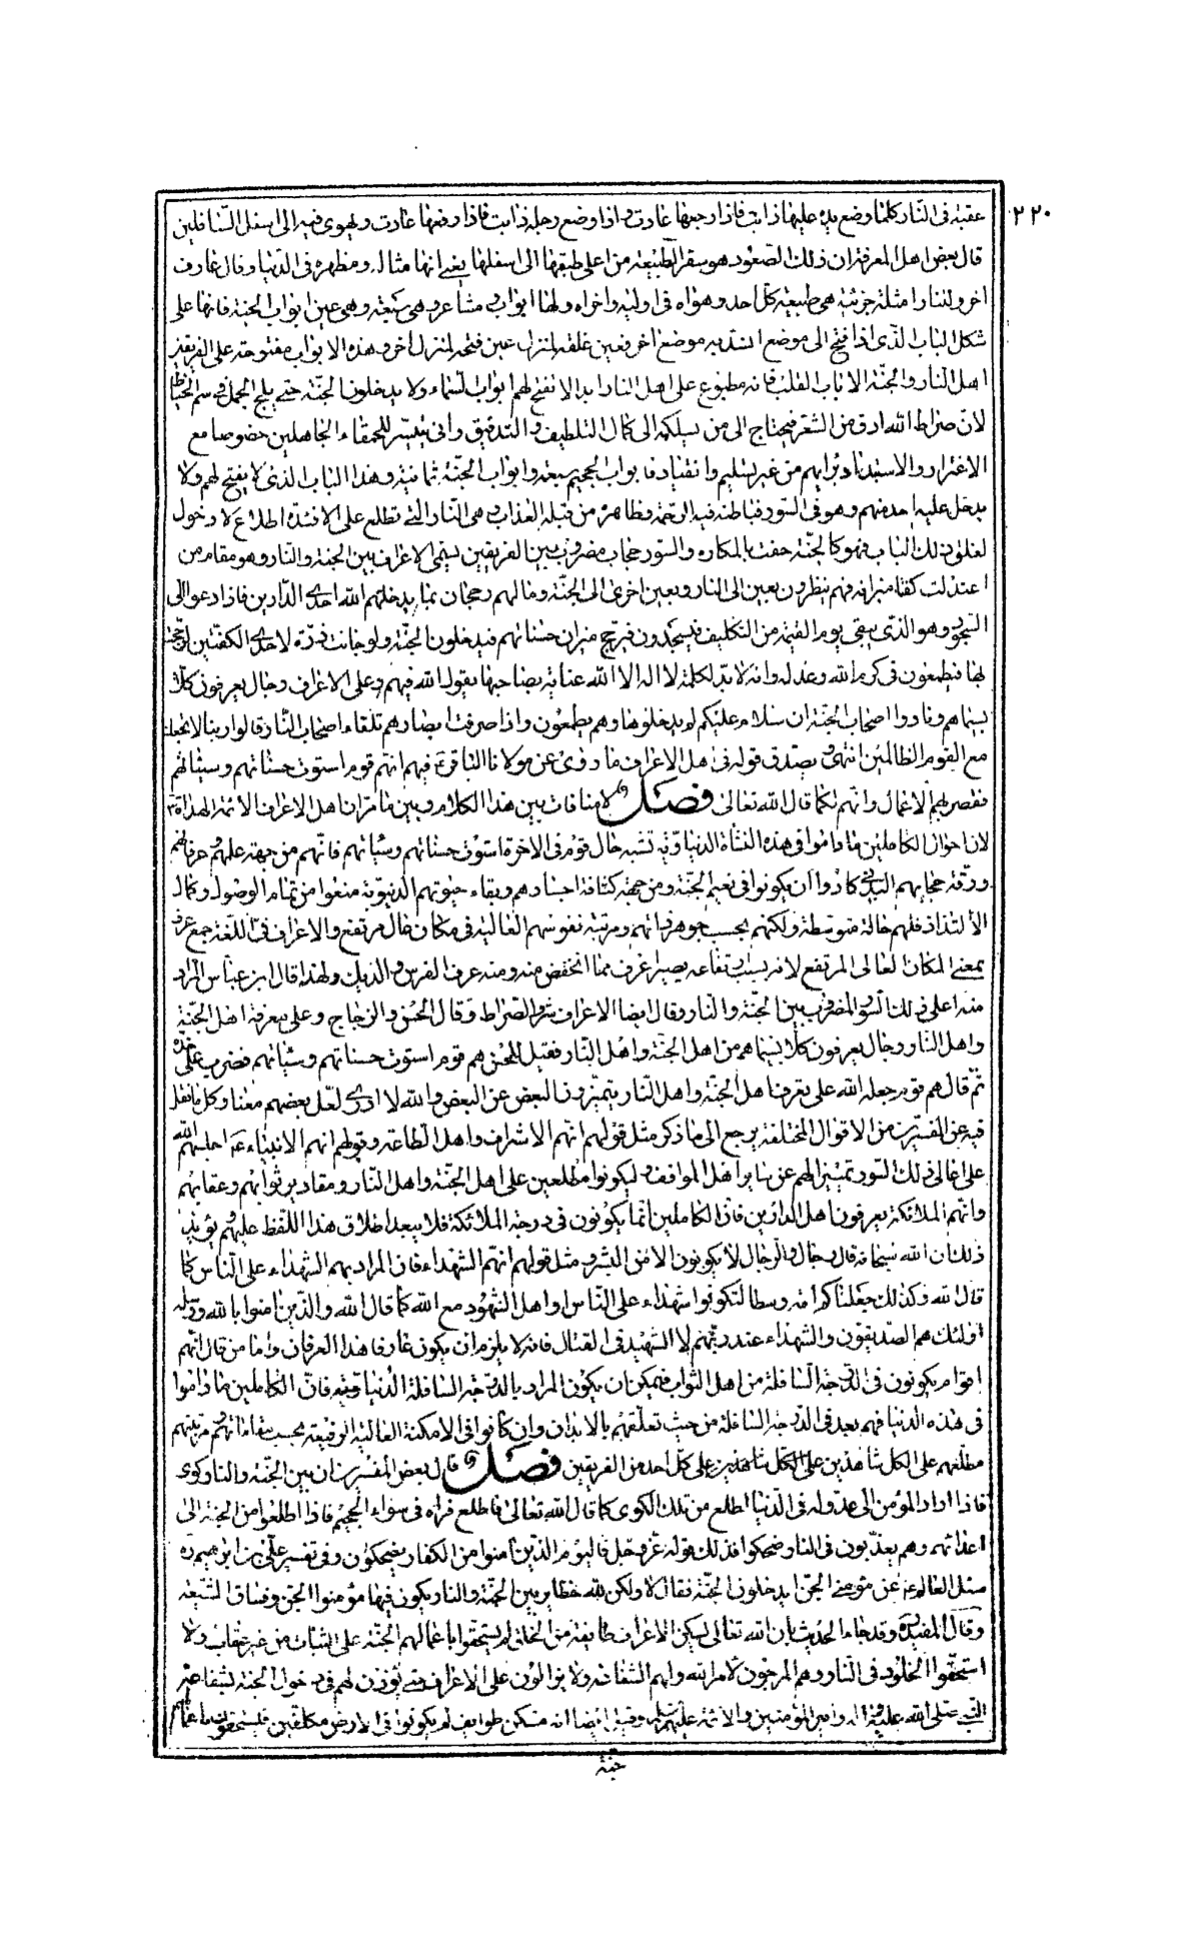 ٢٢٠
عقبة فى النار كلما وضع يده عليها ذابت فاذا رفعها عادت واذا وضع رجله ذابت فاذا رفعها عادت ويهوى فيه الى اسفل السافلين
قال بعض اهل المعرفة ان ذلك الصعود هو سقر الطبيعة من اعلى طبقها الى اسفلها يعنى انها مثاله ومظهره فى الدنيا وقال عارف
اخر وللنار امثلة جزئية هى طبيعة كل احد وهواه فى اولیه واخراه ولها ابواب ومشاعر هى سبعة وهى عين ابواب الجنة فانها على
شكل الباب الذى اذا فتح الى موضع انسد به موضع اخر فعين غلقه لمنزل عين فتحه لمنزل اخر وهذه الابواب مفتوحة على الفريقين
اهل النار والجنة الا باب القلب فانه مطبوع على اهل النار ابدا لا تفتح لهم ابواب السماء ولا يدخلون الجنة حتى يلج الجمل فى سم الخياط
لان صراط الله ادق من الشعر فيحتاج الى من يسلكه الى كمال التلطيف والتدقيق وانى يتيسر للحمقاء الجاهلين خصوصا مع
الاغترار والاستبداد برايهم من غير تسليم وانقياد فابواب الجحيم سبعة وابواب الجنة ثمانية وهذا الباب الذى لا يفتح لهم ولا
يدخل عليه احد منهم وهو فى السور فباطنه فيه الرحمة وظاهره من قبله العذاب وهى النار التى تطلع على الافئدة اطلاع لا دخول
لغلق ذلك الباب فهو كالجنة حفت بالمكاره والسور حجاب مضروب بين الفريقين يسمى الاعراف بين الجنة والنار وهو مقام من
اعتدلت كفتا ميزانه فهم ينظرون بعين الى النار وبعين اخرى الى الجنة وما لهم رجحان بما يدخلهم الله احدى الدارين فاذا دعوا الى
السجود وهو الذى يبقى يوم القيمة من التكليف فيسجدون فيرجح ميزان حسناتهم فيدخلون الجنة ولو جاءت ذرة لاحدى الكفتين لرجحت
بها فيطمعون فى كرم الله وعدله وانه لا بد لكلمة لا اله الا الله عناية بصاحبها يقول الله فيهم وعلى الاعراف رجال يعرفون كلا
بسيماهم ونادوا اصحاب الجنة ان سلام عليكم لم يدخلوها وهم يطمعون واذا صرفت ابصارهم تلقاء اصحاب النار قالوا ربنا لا تجعلنا
مع القوم الظالمين انتهى ويصدق قوله فى اهل الاعراف ما روى عن مولانا الباقر ع فيهم انهم قوم استوت حسناتهم وسيئاتهم
فقصر بهم الاعمال وانهم لكما قال الله تعالى فصل لا منافات بين هذا الكلام وبين ما مر ان اهل الاعراف الائمة الهداة ع
لان احوال الكاملين ما داموا فى هذه النشاة الدنياوية تشبه حال قوم فى الاخرة استوت حسناتهم وسيئاتهم فانهم من جهة علمهم وعرفانهم
ورقة حجابهم البدنى كادوا ان يكونوا فى نعيم الجنة ومن جهة كثافة اجسادهم وبقاء حيوتهم الدنيوية منعوا من تمام الوصول وكمال
الالتذاذ فلهم حالة متوسطة ولكنهم بحسب جوهر ذاتهم ومرتبة نفوسهم العالية فى مكان عال مرتفع والاعراف فى اللغة جمع عرف
بمعنى المكان العالى المرتفع لانه بسبب ارتفاعه يصير اعرف مما انخفض منه ومنه عرف الفرس والديك ولهذا قال ابن عباس المراد
منه اعلى ذلك السور المضروب بين الجنة والنار وقال ايضا الاعراف شرف الصراط وقال الحسن والزجاج وعلى معرفة اهل الجنة
واهل النار رجال يعرفون كلا بسيماهم من اهل الجنة واهل النار فقيل للحسن هم قوم استوت حسناتهم وسيئاتهم فضرب على فخذه
ثم قال هم قوم جعله الله على تعرف اهل الجنة واهل النار يتميزون البعض عن البعض والله لا ادرى لعل بعضهم معنا وكل ما نقل
فيه عن المفسرين من الاقوال المختلفة يرجع الى ما ذكر مثل قولهم انهم الاشراف واهل الطاعة وقولهم انهم الانبياء ع اجلسهم الله
على اعالى ذلك السور تمييزا لهم عن سائر اهل الموافقة وليكونوا مطلعين على اهل الجنة واهل النار ومقادير ثوابهم وعقابهم
وانهم الملائكة يعرفون اهل الدارين فان الكاملين انما يكونون فى درجة الملائكة فلا يبعد اطلاق هذا اللفظ عليهم ويؤيد
ذلك ان الله سبحانه قال رجال والرجال لا يكونون الا من البشر ومثل قولهم انهم الشهداء فان المراد بهم الشهداء على الناس كما
قال الله وكذلك جعلناكم امة وسطا لتكونوا شهداء على الناس او اهل الشهود مع الله كما قال الله والذين امنوا بالله ورسله
اولئك هم الصديقون والشهداء عند ربهم لا الشهيد فى القتال فانه لا يلزم ان يكون عارفا هذا العرفان واما من قال انهم
اقوام يكونون فى الدرجة السافلة من اهل الثواب فيمكن ان يكون المراد بالدرجة السافلة الدنياوية فان الكاملين ما داموا
فى هذه الدنيا فهم بعد فى الدرجة السافلة من حيث تعلقهم بالابدان وان كانوا فى الامكنة العالية الرفيعة بحسب مقاماتهم ومرتبتهم
مطلعهم على الكل شاهدين على الكل شاهدين على كل احد من الفريقين فصل قال بعض المفسرين ان بين الجنة والنار كوى
فاذا اراد المؤمن الى عدو له فى الدنيا اطلع من تلك الكوى كما قال الله تعالى فاطلع فراه فى سواء الجحيم فاذا اطلعوا من الجنة الى
اعدائهم وهم يعذبون فى النار ضحكوا فذلك قوله عز وجل فاليوم الذين امنوا من الكفار يضحكون وفى تفسير على بن ابرهيم ره
سئل العالم ع عن مؤمنى الجن ايدخلون الجنة فقال لا ولكن لله حظاير بين الجنة والنار يكون فيها مؤمنوا الجن وفساق الشيعة
وقال المفيد ره وقد جاء الحديث بان الله تعالى يسكن الاعراف طايفة من الخلق لم يستحقوا باعمالهم الجنة على الثبات من غير عقاب ولا
استحقوا الخلود فى النار وهم المرجون لامر الله ولهم الشفاعة ولا يزالون على الاعراف حتى يؤذن لهم فى دخول الجنة بشفاعة
النبى صلى الله عليه واله وامير المؤمنين والائمة عليهم السلام وقيل ايضا انه مسكن طوايف لم يكونوا فى الارض مكلفين فيستحقون باعمالهم
جنة